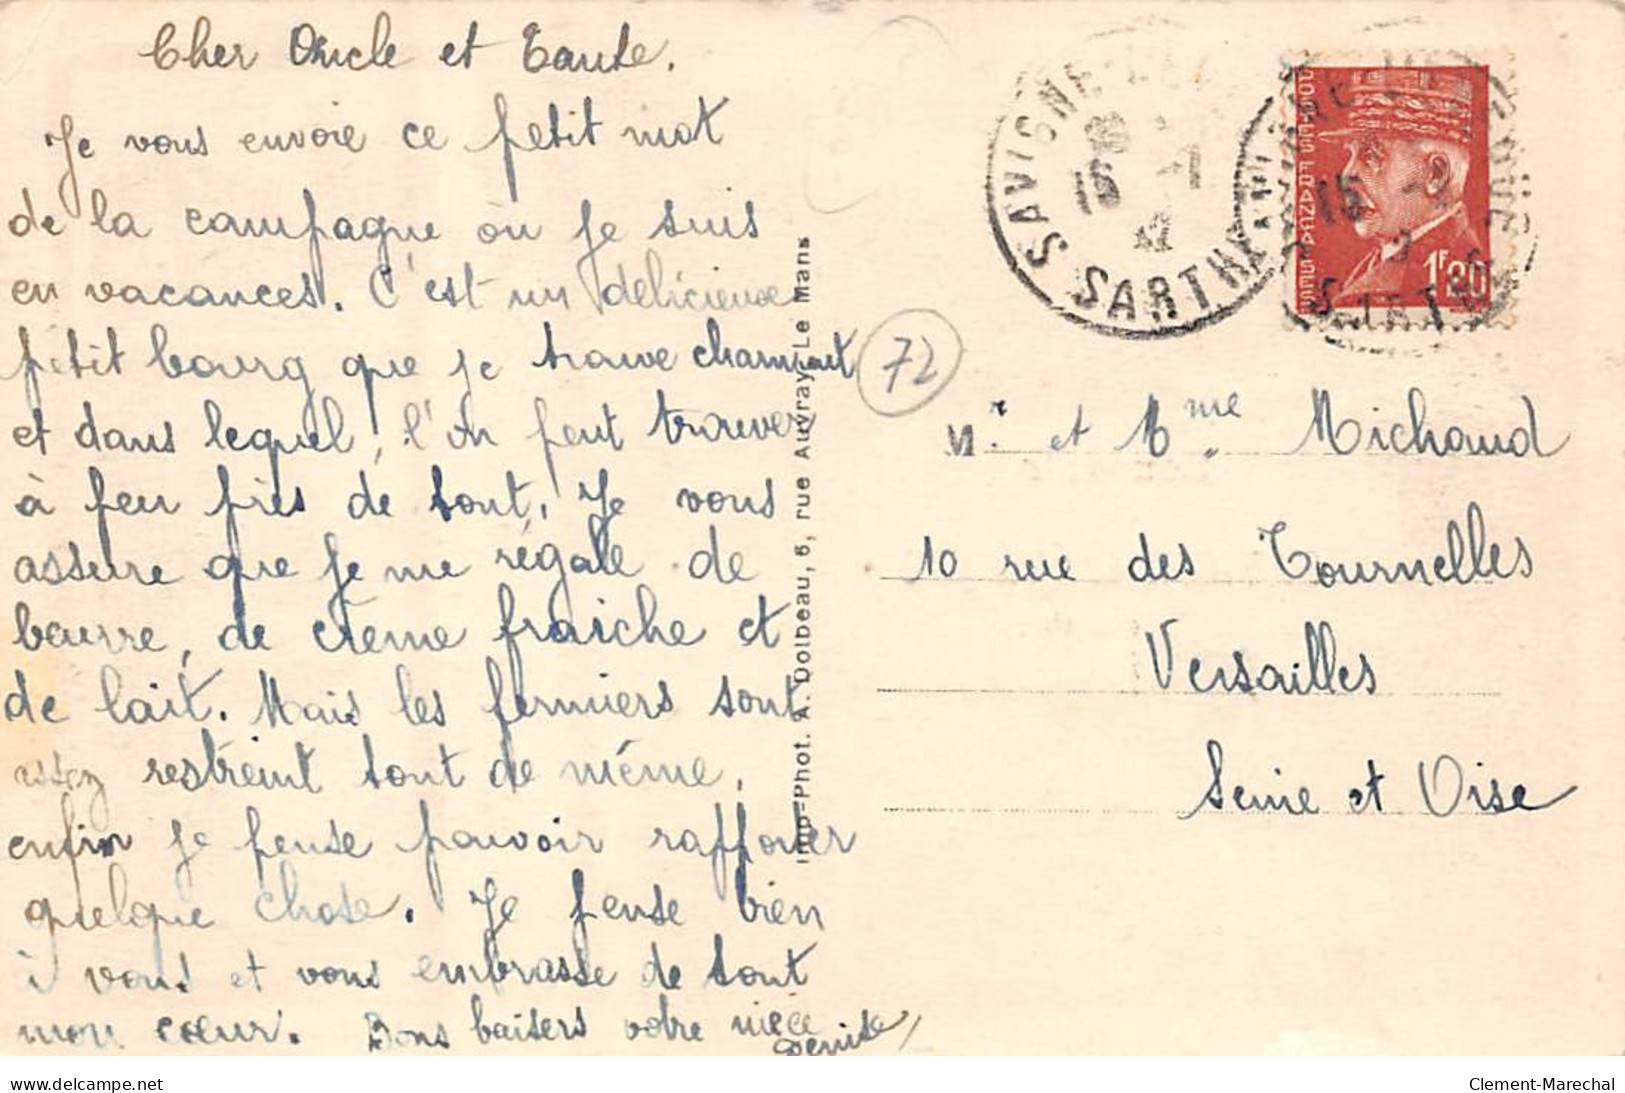 Cher Oncle et Tante.
Je vous envoie ce petit mot
de la campagne où je suis
en vacances. C'est un délicieux
petit bourg que je trouve charmant
et dans lequel, l'on peut trouver
à peu près de tout. Je vous
assure que je me régale de
beurre, de crème fraiche et
de lait. Mais les fermiers sont
assez restreint tout de même,
enfin je pense pouvoir rapporter
quelque chose. Je pense bien
à vous et vous embrasse de tout
mon cœur. Bons baisers votre nièce
Denise
Imp-Phot. A. Dolbeau, 5, rue Auvray, Le Mans
72
SAVIGNÉ-L'EV
15 -7
42
SARTHE
15
SARTHE
POSTES FRANÇAISES
1F20
Mr et Mme Michaud
10 rue des Tournelles
Versailles
Seine et Oise
www.delcampe.net
Clement-Marechal